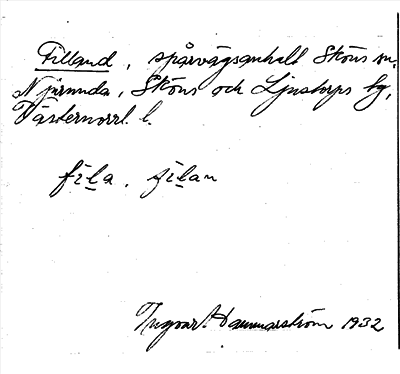 Filland, spårvägsanhalt Sköns sn.
Njurunda, Sköns och Ljustorps tg,
Västernorrl. l.
fila. filan
Ingvar Hammarström 1932